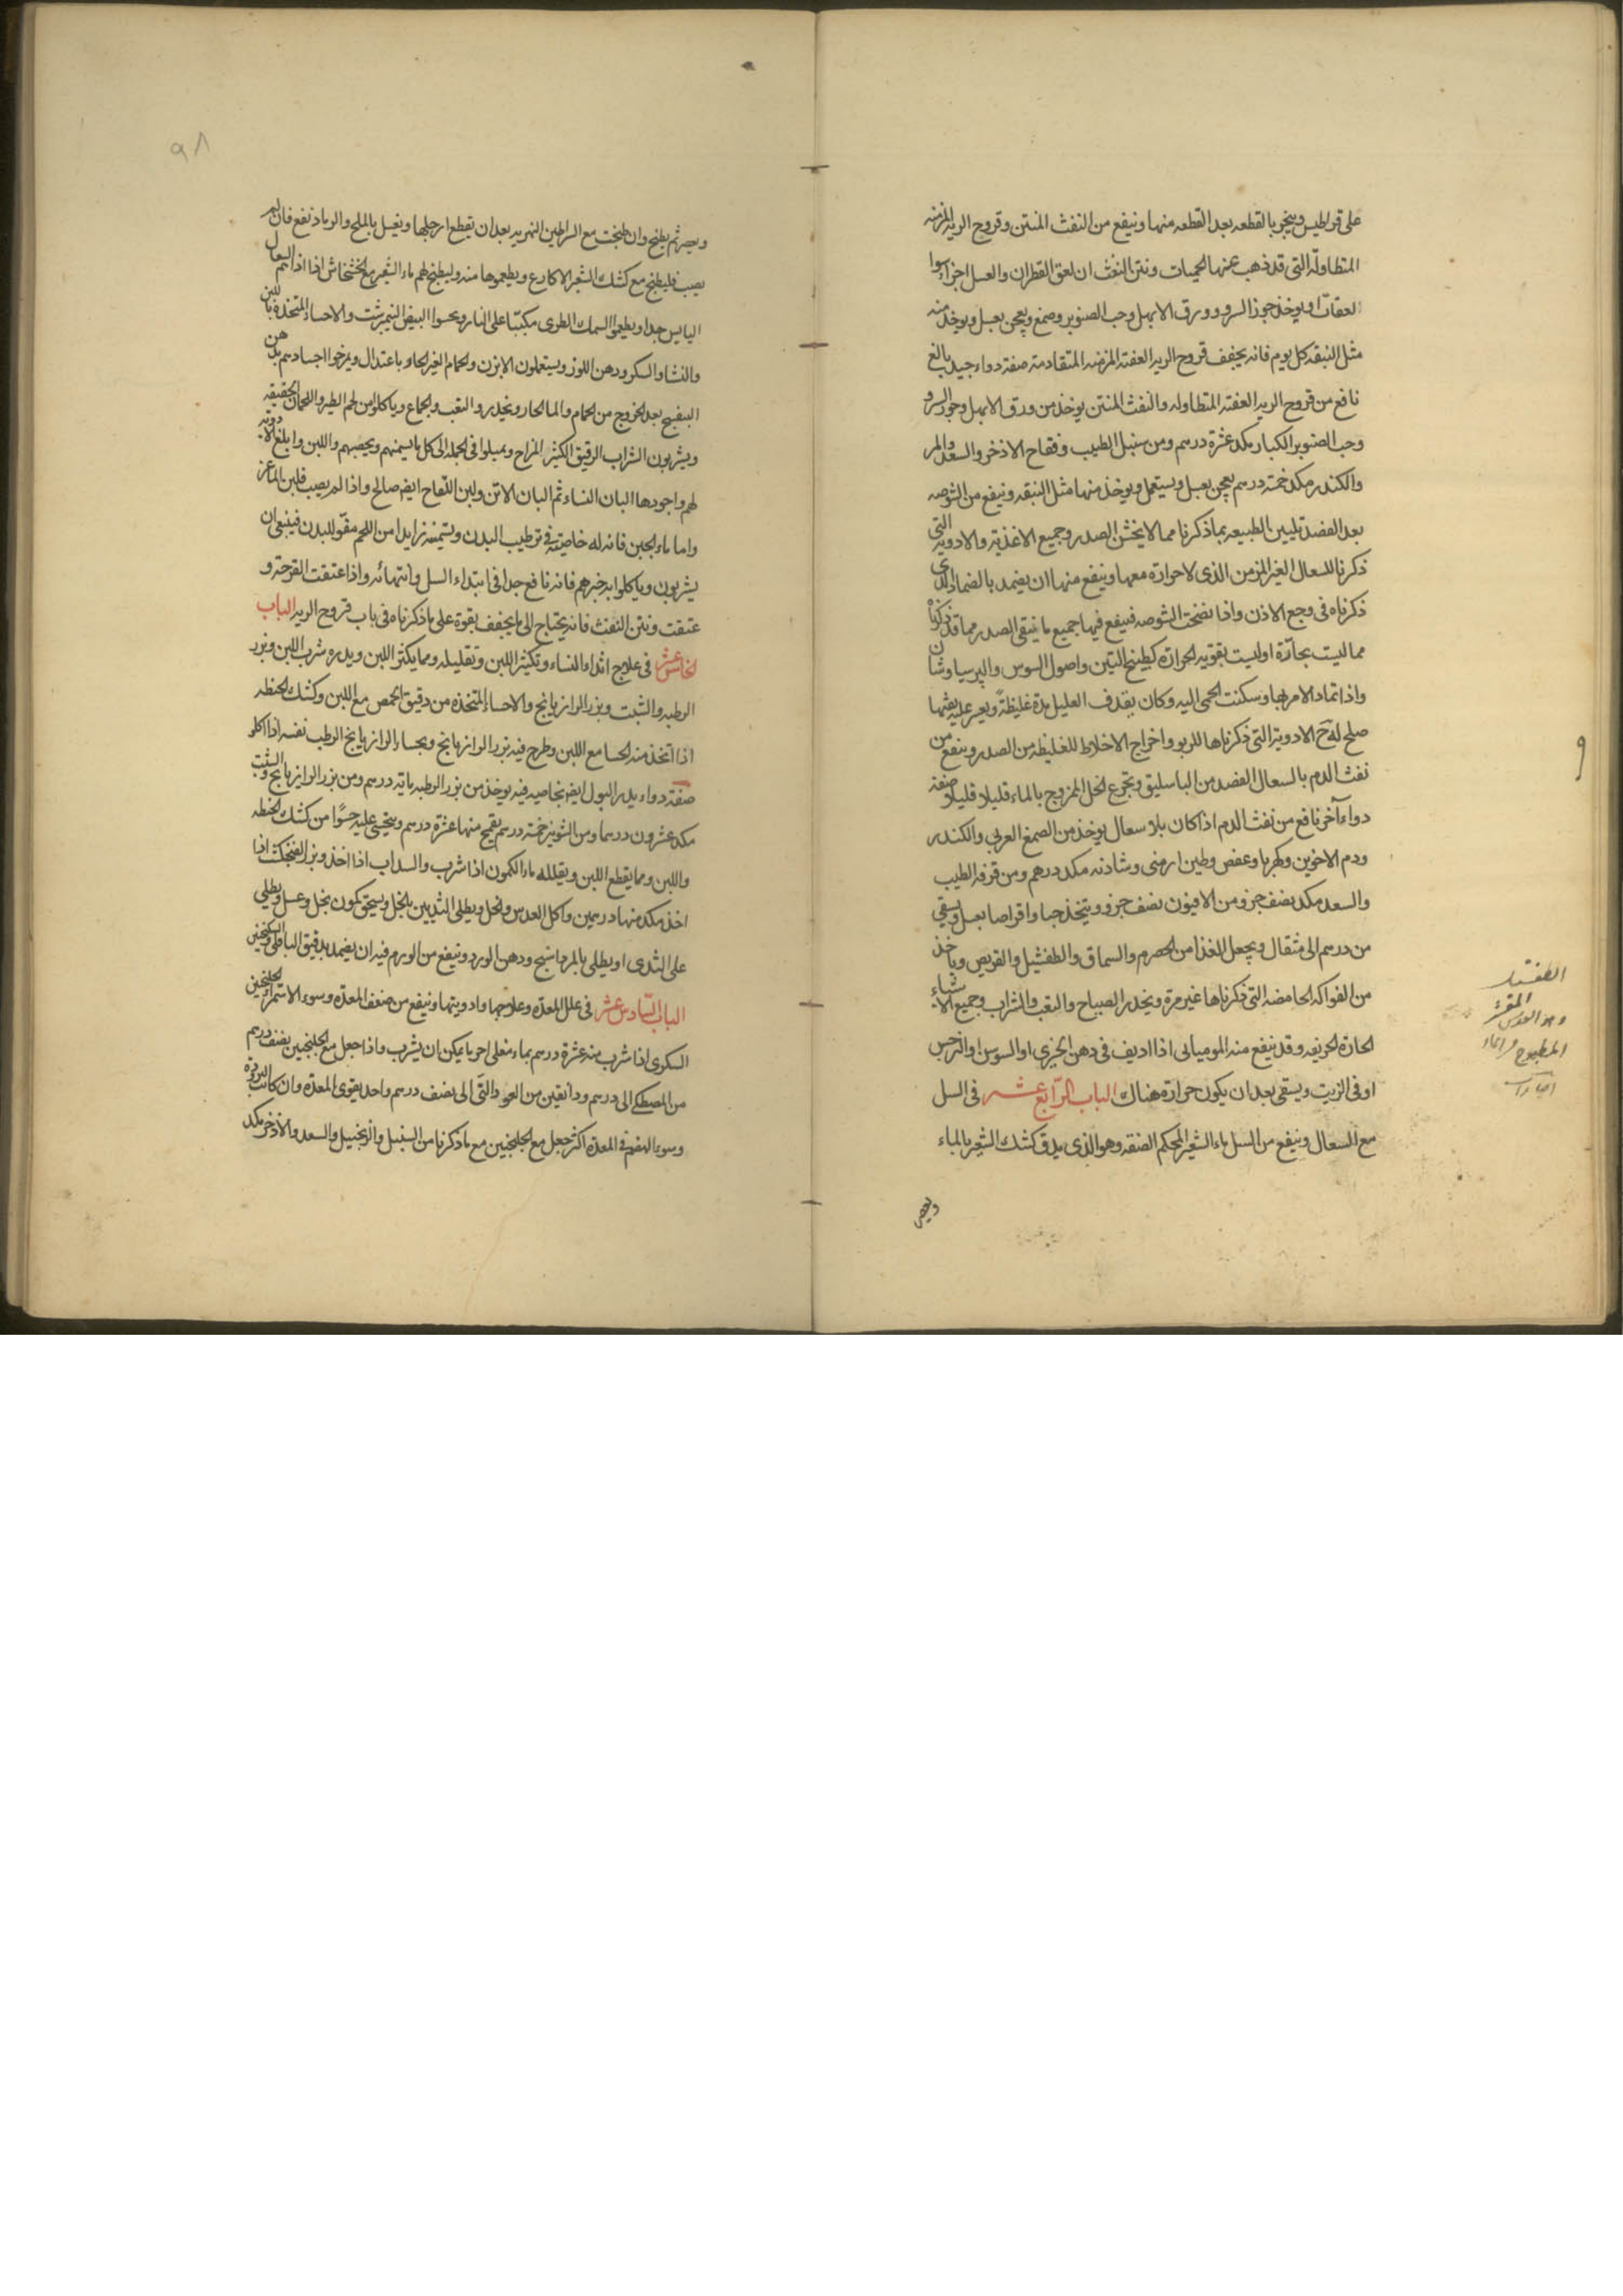 على قراطيس ويبخر بالقطعه بعد القطعه منها وينفع من النفث المنتن وقروح الريه المزمنه
المتطاوله التى قد ذهب عنها الحميات ونتن النفث ان لعق القطران والعسل اجزاء سوا
لعقات او يوخذ جوز السرو وورق الابهل وحب الصنوبر وصمغ ويعجن بعسل ويوخذ منه
مثل النبقه كل يوم فانه يجفف قروح الريه العفنه المزمنه المتقادمة صفة دواء جيد بالغ
نافع من قروح الريه العفنه المتطاوله والنفث المنتن يوخذ من ورق الابهل وجوز السرو
وحب الصنوبر الكبار مكد عشرة درهم ومن سنبل الطيب وفقاح الاذخر والسعد والمر
والكندر مكد خمسة درهم يعجن بعسل ويستعمل ويوخذ منها مثل النبقه وينفع من الشوصه
بعد الفصد تليين الطبيعه بما ذكرنا مما لا يخشن الصدر وجميع الاغذية والادوية التى
ذكرنا للسعال الغير المزمن الذى لا حرارة معها وينفع منها ان يضمد بالضماد الذى
ذكرناه فى وجع الاذن واذا نضجت الشوصه فينفع فيها جميع ما ينقى الصدر مما قد ذكرنا
مما ليست بحارة او ليست بقويه الحرارة كطبيخ التين واصول السوس والبرسياوشان
واذا تماد الامر بها وسكنت الحمى اليه وكان يقذف العليل مدة غليظة ويعسر عليه نفثها
صلح له ح الادوية التى ذكرناها للربو واخراج الاخلاط الغليظه من الصدر وينفع من
نفث الدم بالسعال الفصد من الباسليق وتجرع الخل الممزوج بالماء قليلا قليلا صفة
دواء آخر نافع من نفث الدم اذا كان بلا سعال يوخذ من الصمغ العربى والكندر
ودم الاخوين وكهربا وعفص وطين ارمنى وشادنه مكد درهم ومن قرفه الطيب
والسعد مكد نصف جزو ومن الافيون نصف جزو ويتخذ حبا واقراصا بعسل ويسقى
من درهم الى مثقال ويجعل الغذا من الحصرم والسماق والطفشيل والقريص وياخذ
من الفواكه الحامضه التى ذكرناها غير مرة ويحذر الصياح والتعب والشراب وجميع الاشياء
الحارة الحريفه وقد ينفع منه الموميائى اذا اديف فى دهن الخيرى او السوسن او النرجس
او فى الزيت ويسقى بعد ان يكون حرارة هناك الباب الرابع عشر فى السل
مع السعال وينفع من السل ماء الشعير المحكم الصنعه وهو الذى يدق كشك الشعير بالماء
ويعصر
وهو العدس المقشر
المطبوخ
٩٨
ويعصر ثم يطبخ وان طبخت مع السراطين النهريه بعد ان يقطع ارجلها ويغسل بالملح والرماد نفع فان لم
يصب فليطبخ مع كشك الشعير الاكارع ويطعموها منه وليطبخ لهم ماء الشعير مع الخشخاش اذا اذاهم السعال
اليابس جدا ويطعموا السمك الطرى مكببا على النار ويحسوا البيض النيمبرشت والاحساء المتخذة باللبن
والنشا والسكر ودهن اللوز ويستعملون الابزن والحمام الغير الحار باعتدال ويمرخوا اجسادهم بدهن
البنفسج بعد الخروج من الحمام والماء الحار ويحذروا التعب والجماع وياكلوا من لحم الطير واللحمان الخفيفه
ويشربون الشراب الرقيق الكثير المزاج ويميلوا فى الجمله الى كل ما يسمنهم ويخصبهم واللبن وابلغ الادوية
لهم واجودها البان النساء ثم البان الاتن ولبن اللقاح ايضا صالح واذا لم يصب فلبن الماعز
واما ماء الجبن فانه له خاصية فى ترطيب البدن وتسمينه زايدا من اللحم مقو للبدن فينبغى ان
يشربون وياكلوا به خبزهم فانه نافع جدا فى ابتداء السل وانتهائه واذا عتقت القرحة و
عتقت ونتن النفث فانه يحتاج الى ما يجفف بقوة على ما ذكرناه فى باب قروح الريه الباب
الخامس عشر فى علاج اثداء النساء وتكثير اللبن وتقليله ومما يكثر اللبن ويدره شرب اللبن وبزر
الرطبه والشبت وبزر الرازيانج والاحساء المتخذه من دقيق الحمص مع اللبن وكشك الحنطه
اذا اتخذ منه الحسا مع اللبن وطرح فيه بزر الرازيانج وبحساء الرازيانج الرطب نفسه اذا اكل
صفة دواء يدر البول ايضا بخاصيه فيه يوخذ من بزر الرطبه ماية درهم ومن بزر الرازيانج والشبت
مكد عشرون درهما ومن الشونيز خمسة درهم يقمح منها عشرة درهم ويتحسى عليه حسوا من كشك الحنطه
واللبن ومما يقطع اللبن ويقلله ماء الكمون اذا شرب والسداب اذا اخذ وبزر الفنجنكشت اذا
اخذ مكد منها درهمين واكل العدس والخل ويطلى الثديين بالخل ويسحق كمون بخل وعسل ويطلى
على الثدى او يطلى بالمرداسنج ودهن الورد وينفع من الورم فيه ان يضمد بدقيق الباقلى والسكنجبين
الباب السادس عشر فى علل المعدة وعلاجها وادويتها وينفع من ضعف المعدة وسوء الاستمراء الجلنجبين
السكرى اذا شرب منه عشرة درهم بماء مغلى احر ما يمكن ان يشرب واذا جعل مع الجلنجبين نصف درهم
من المصطكى الى درهم ودانقين من العود والنى الى نصف درهم واحد يقوى المعدة وان كانت البروده
وسوء الهضم فى المعدة اكثر جعل مع الجلنجبين مع ما ذكرنا من السنبل والزنجبيل والسعد والاذخر مكد